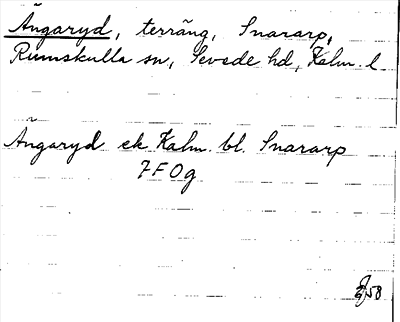 Ängaryd, terräng, Snararp,
Rumskulla sn, Sevede hd, Kalm. l.
Ängaryd ek Kalm. bl. Snararp
7F0g
58